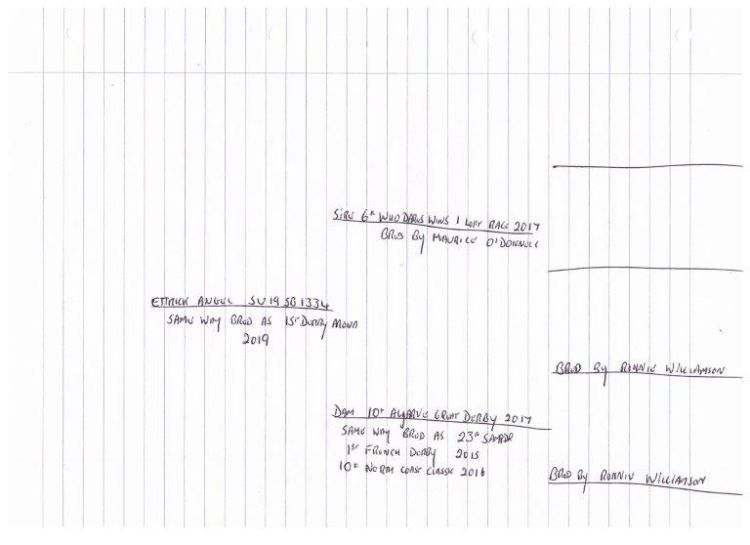 SIRE 6th WHO DARES WINS 1 LOFT RACE 2017
BRED BY MAURICE O'DONNELL
ETTRICK ANGEL SU 19 SB 1334
SAME WAY BRED AS 1ST DERBY MOWN
2019
BRED BY RONNIE WILLIAMSON
DAM 10th ALGARVE GREAT DERBY 2017
SAME WAY BRED AS 23rd SAMRDR
1ST FRENCH DERBY 2015
10th NORTH COAST CLASSIC 2016
BRED BY RONNIE WILLIAMSON